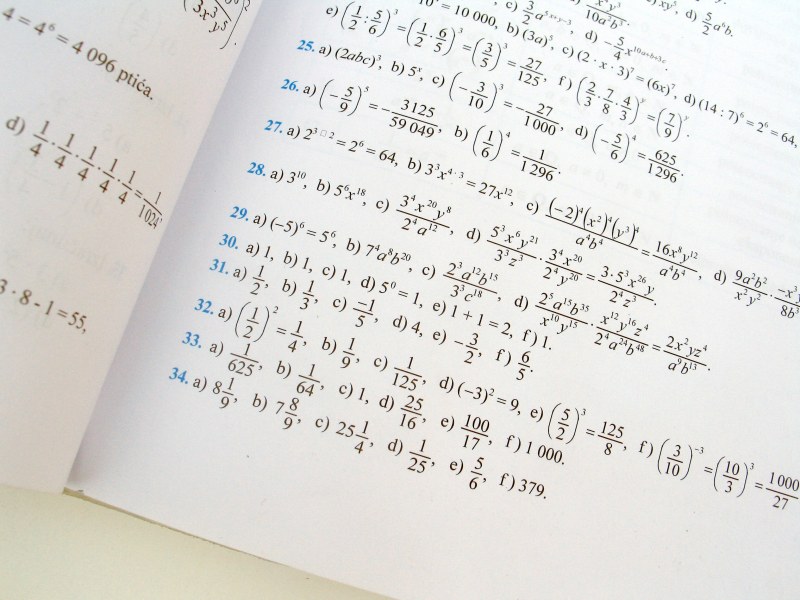 4 = 4⁶ = 4 096 ptića.
d) 1/4 · 1/4 · 1/4 · 1/4 · 1/4 = 1/1024
3 · 8 - 1 = 55,
= 10 000, b) (3a)⁵, c) (2 · x · 3)⁷ = (6x)⁷, d) (14 : 7)⁶ = 2⁶ = 64,
e) (1/2 : 5/6)³ = (1/2 · 6/5)³ = (3/5)³ = 27/125, f) (2/3 · 7/8 · 4/3)^y = (7/9)^y.
25. a) (2abc)³, b) 5ˣ, c) (-3/10)³ = -27/1000, d) (-5/6)⁴ = 625/1296.
26. a) (-5/9)⁵ = -3125/59 049, b) (1/6)⁴ = 1/1 296.
27. a) 2³ □ ² = 2⁶ = 64, b) 3³x⁴ · ³ = 27x¹², c) (-2)⁴(x²)⁴(y³)⁴/a⁴b⁴ = 16x⁸y¹²/a⁴b⁴, d) 9a²b²/x²y² ·
28. a) 3¹⁰, b) 5⁶x¹⁸, c) 3⁴x²⁰y⁸/2⁴a¹², d) 5³x⁶y²¹/3³z³ · 3⁴x²⁰/2⁴y²⁰ = 3 · 5³x²⁶y/2⁴z³.
29. a) (-5)⁶ = 5⁶, b) 7⁴a⁸b²⁰, c) 2³a¹²b¹⁵/3³c¹⁸, d) 2⁵a¹⁵b³⁵/x¹⁰y¹⁵ · x¹²y¹⁶z⁴/2⁴a²⁴b⁴⁸ = 2x²yz⁴/a⁹b¹³.
30. a) 1, b) 1, c) 1, d) 5⁰ = 1, e) 1 + 1 = 2, f) 1.
31. a) 1/2, b) 1/3, c) -1/5, d) 4, e) -3/2, f) 6/5.
32. a) (1/2)² = 1/4, b) 1/9, c) 1/125, d) (-3)² = 9, e) (5/2)³ = 125/8, f) (3/10)⁻³ = (10/3)³ = 1000/27
33. a) 1/625, b) 1/64, c) 1, d) 25/16, e) 100/17, f) 1 000.
34. a) 8 1/9, b) 7 8/9, c) 25 1/4, d) 1/25, e) 5/6, f) 379.